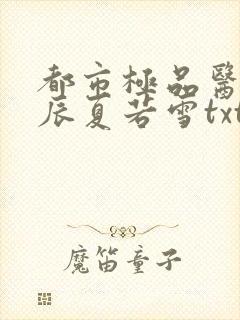 都市極品醫
辰夏若雪txt
魔笛童子